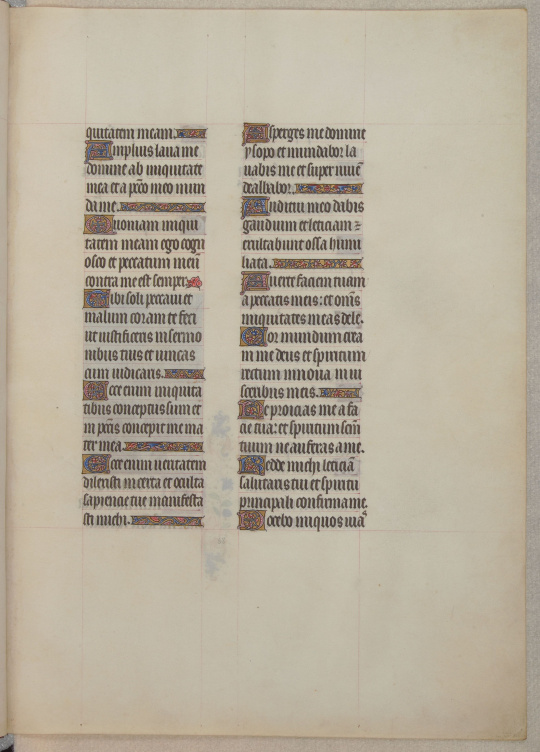 quitatem meam.
Amplius laua me
domine ab iniquitate
mea et a pccō meo mun
da me.
Quoniam iniqui
tatem meam ego cogn
osco et peccatum meū
contra me est semper.
Tibi soli peccaui et
malum coram te feci
ut iustificeris in sermo
nibus tuis et uincas
cum iudicaris.
Ecce enim iniquita
tibus conceptus sum et
in pccīs concepit me ma
ter mea.
Ecce enim ueritatem
dilexisti incerta et occulta
sapiencie tue manifesta
sti michi.
Asperges me domine
ysopo et mundabor la
uabis me et super niuē
dealbabor.
Auditui meo dabis
gaudium et leticiam ⁊
exultabunt ossa humi
liata.
Auerte faciem tuam
a peccatis meis: et om̄s
iniquitates meas dele.
Cor mundum crea
in me deus et spiritum
rectum innoua in ui
sceribus meis.
Ne proicias me a fa
cie tua: et spiritum scm̄
tuum ne auferas a me.
Redde michi leticiā
salutaris tui et spiritu
principali confirma me.
Docebo iniquos uiaˢ